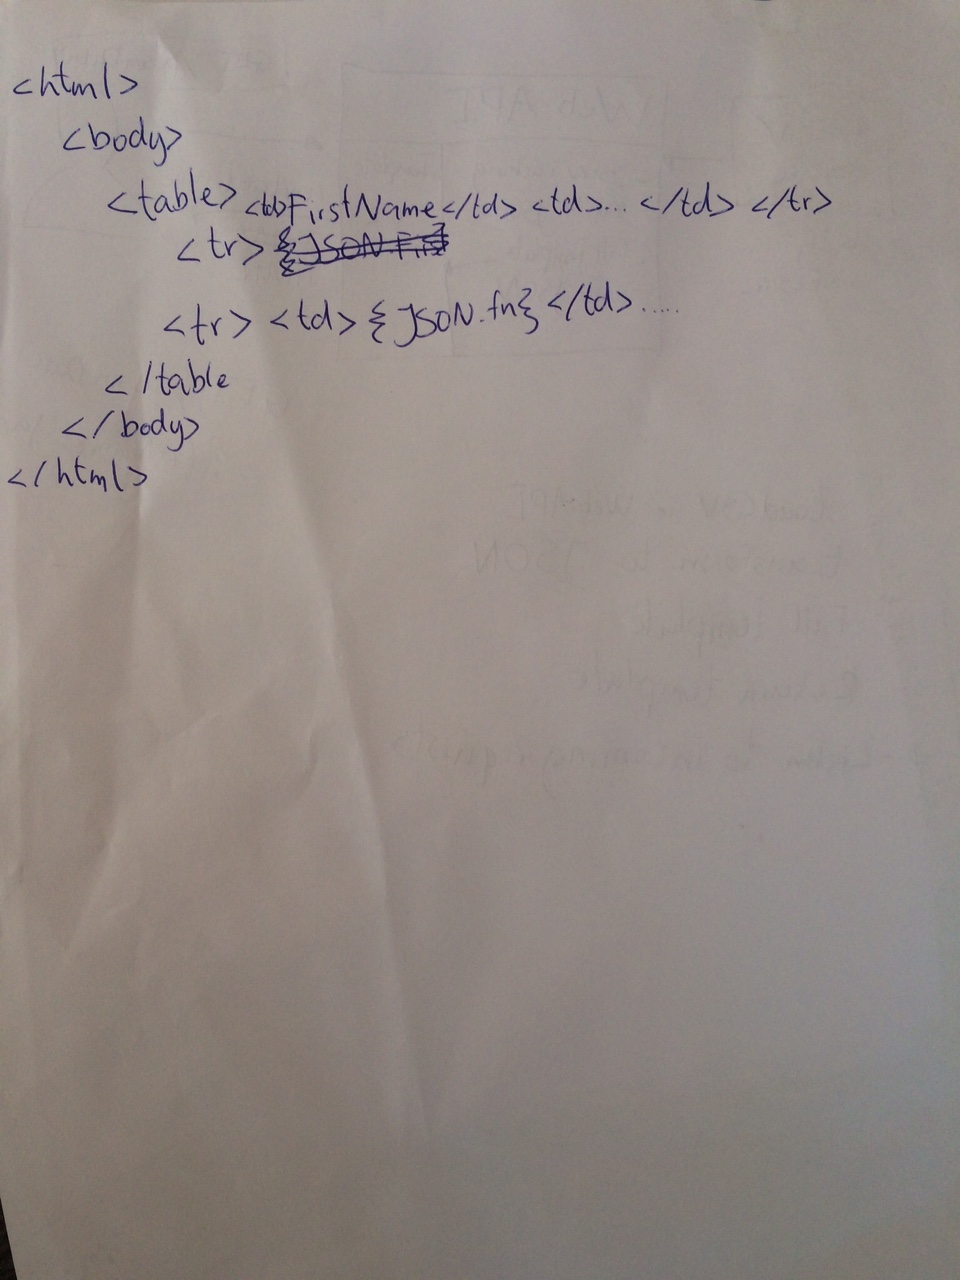 <html>
<body>
<table> <td>FirstName</td> <td>... </td> </tr>
<tr> {JSON.Firs
<tr> <td> {JSON.fn} </td> .....
</table
</body>
</html>